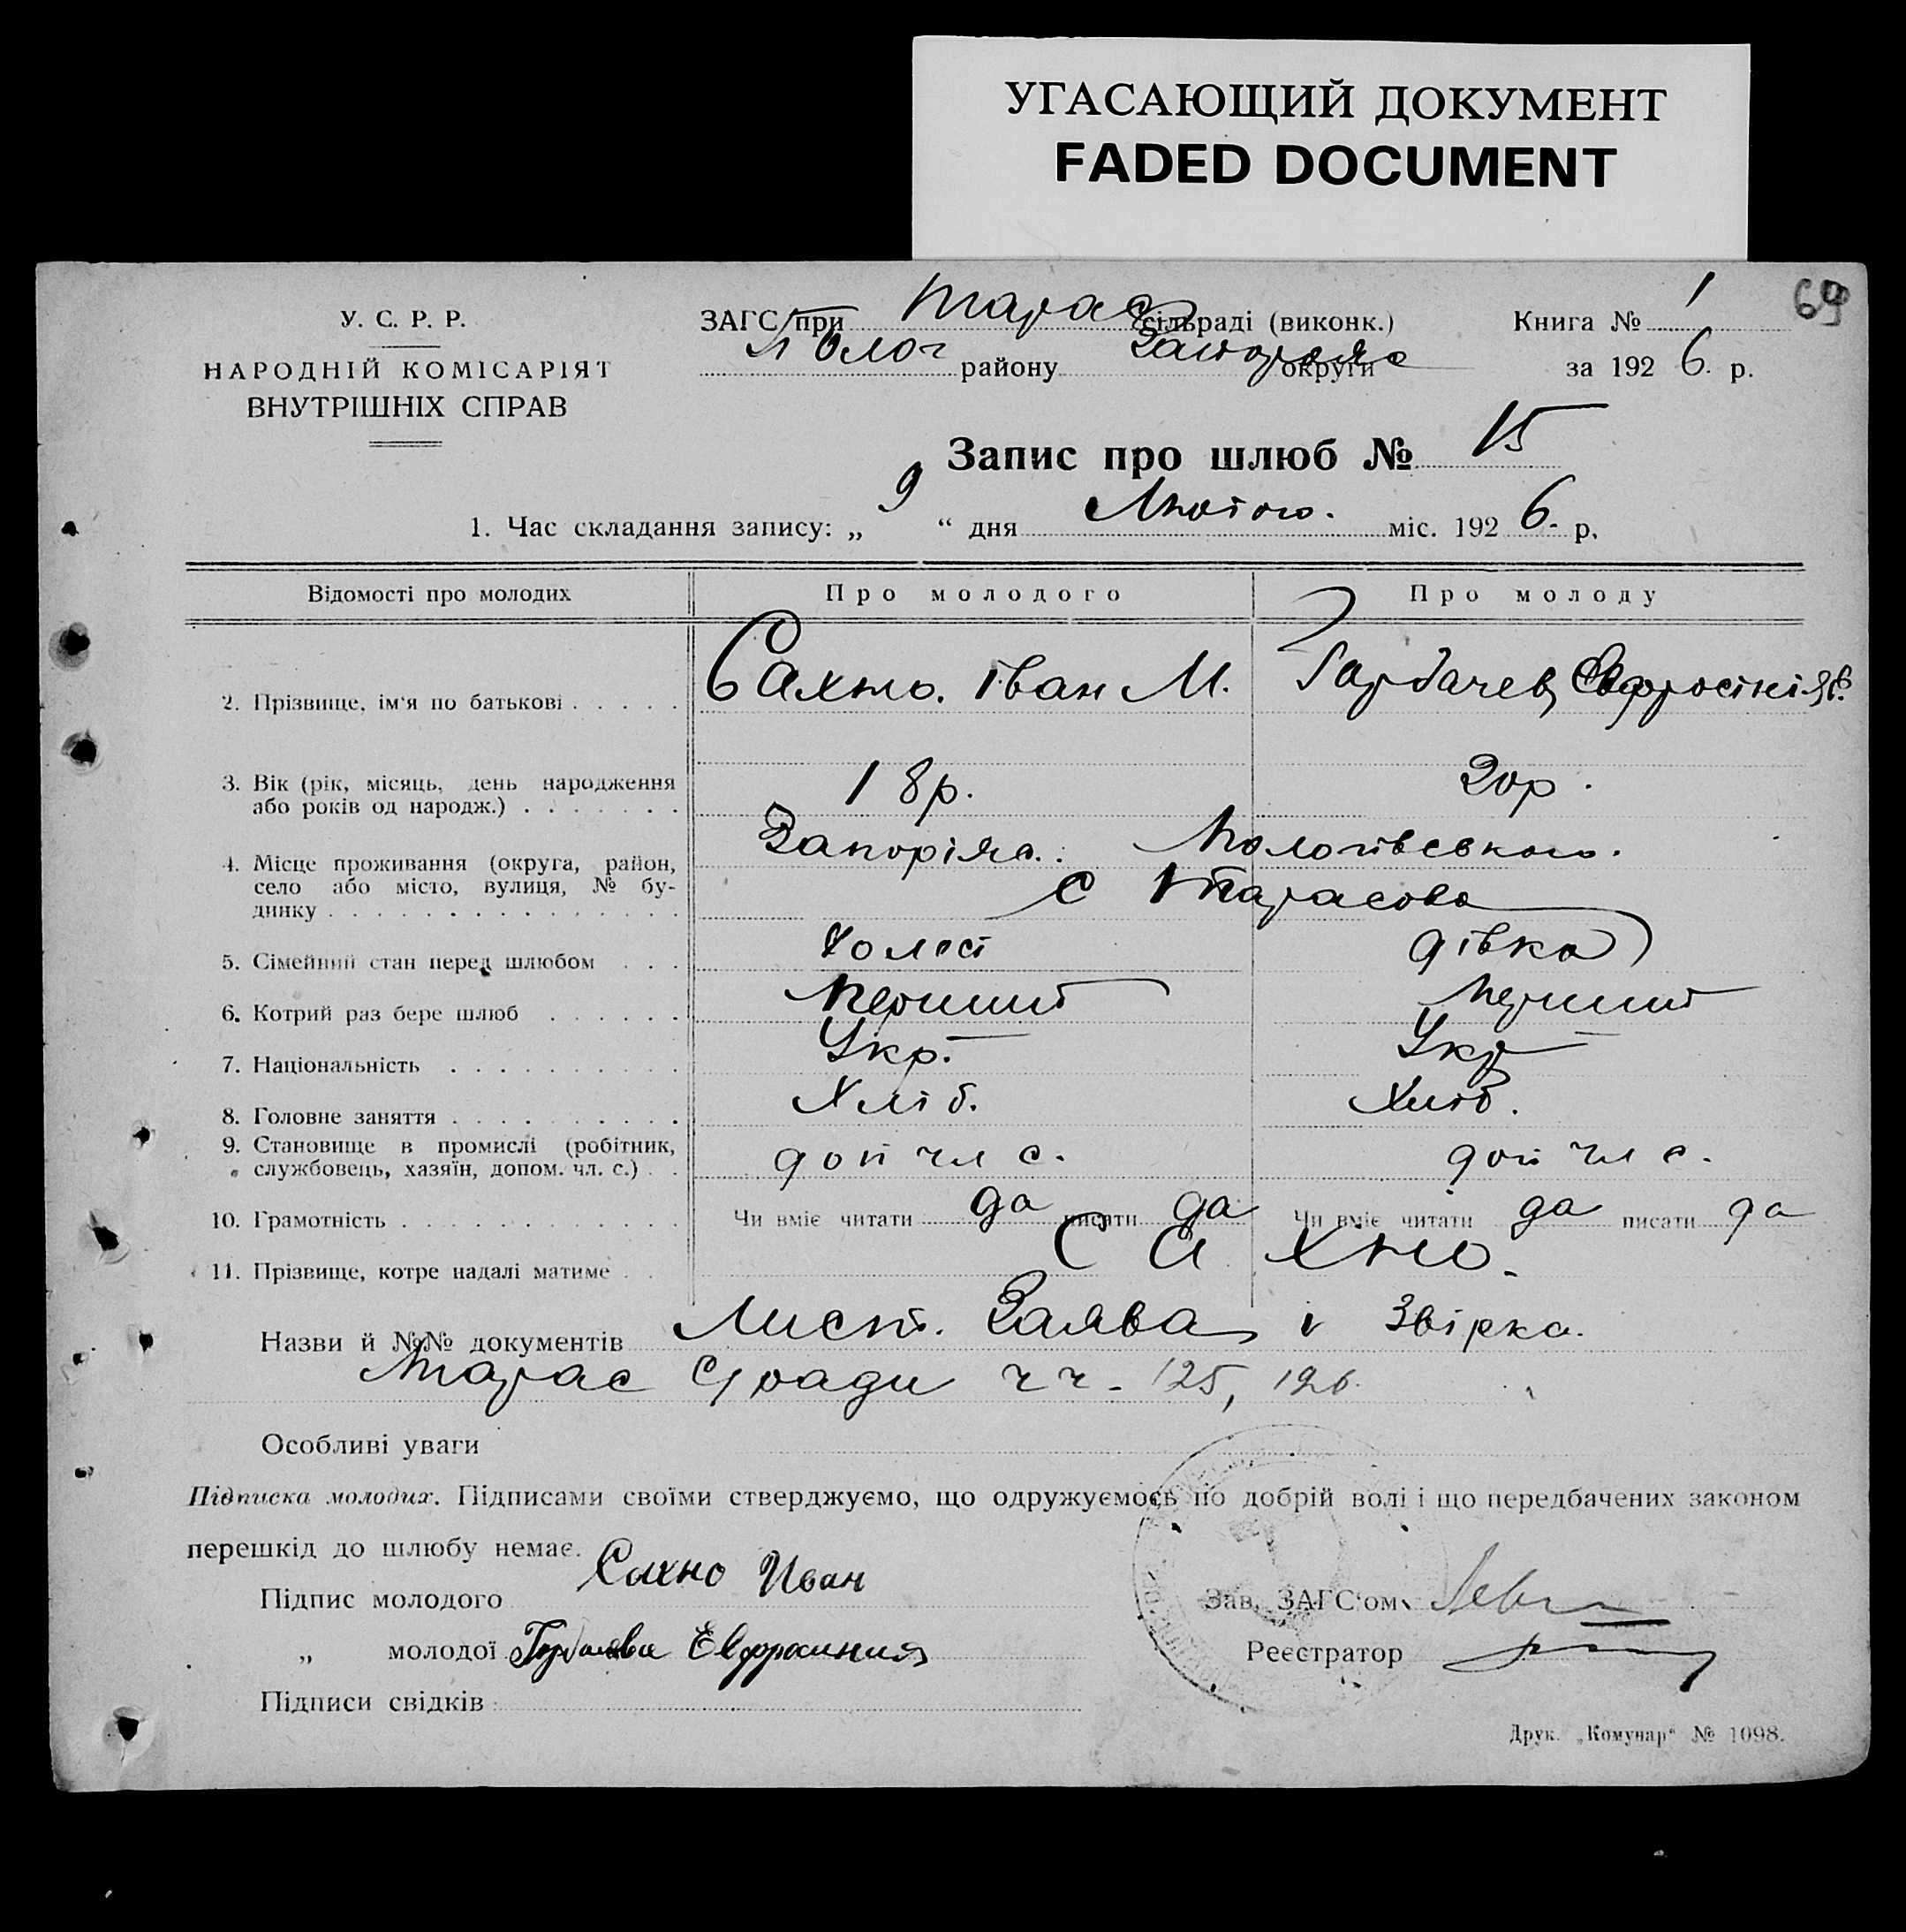 УГАСАЮЩИЙ ДОКУМЕНТ
FADED DOCUMENT
69
У. С. Р. Р.
НАРОДНІЙ КОМІСАРІЯТ
ВНУТРІШНІХ СПРАВ
ЗАГС при Тарас сільраді (виконк.)
Полог району Запоріжж округи
Книга № 1
за 1926. р.
Запис про шлюб № 15
1. Час складання запису: „ 9 “ дня Лютого. міс. 1926. р.
Відомості про молодих Про молодого Про молоду
2. Прізвище, ім'я по батькові . . . . . Сахно. Іван М. Горбачева Євфросінія
3. Вік (рік, місяць, день народження
або років од народж.) . . . . . . . 18р. 20р.
4. Місце проживання (округа, район,
село або місто, вулиця, № бу-
динку . . . . . . . . . . . . . . . .
Запоріжа. Пологівського.
с Тарасовка
5. Сімейний стан перед шлюбом . . . Холост дівка
6. Котрий раз бере шлюб . . . . . . Перший Перший
7. Національність . . . . . . . . . . Укр. Укр
8. Головне заняття . . . . . . . . . . Хліб. Хліб.
9. Становище в промислі (робітник,
службовець, хазяїн, допом. чл. с.) . . доп чл с. доп чл с.
10. Грамотність . . . . . . . . . . . . Чи вміє читати да писати да Чи вміє читати да писати да
11. Прізвище, котре надалі матиме . . Сахно.
Назви й №№ документів Лист. Заява і Звірка.
Тарас С/ради чч. 125, 126.
Особливі уваги
Підписка молодих. Підписами своїми стверджуємо, що одружуємось по добрій волі і що передбачених законом
перешкід до шлюбу немає.
Підпис молодого Сахно Иван
„ молодої Горбачева Евфросиния
Підписи свідків
Зав. ЗАГС'ом
Реєстратор
Друк. „Комунар“ № 1098.